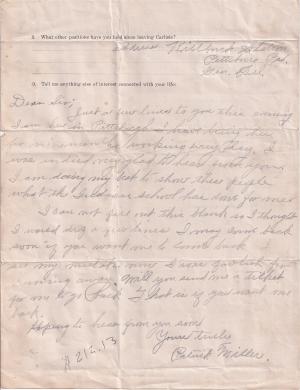 8. What other positions have you held since leaving Carlisle?
address Station
Pittsburg Pa.
Gen. Del.
9. Tell me anything else of interest connected with your life:
Dear Sir;
Just a few lines to you this evening
I am here in Pittsburg I have been here
for working every day. I
was indeed very glad to hear from you.
I am doing my best to show these people
what the Indian school has done for me.
I can not fill out this blank so I thought
I would drop a few lines I may come back
soon if you want me to come back
my mistake
running away. Will you send me a ticket
for me to go back. That is if you want me
back.
Hoping to hear from you soon
Yours truly
Patrick Miller.